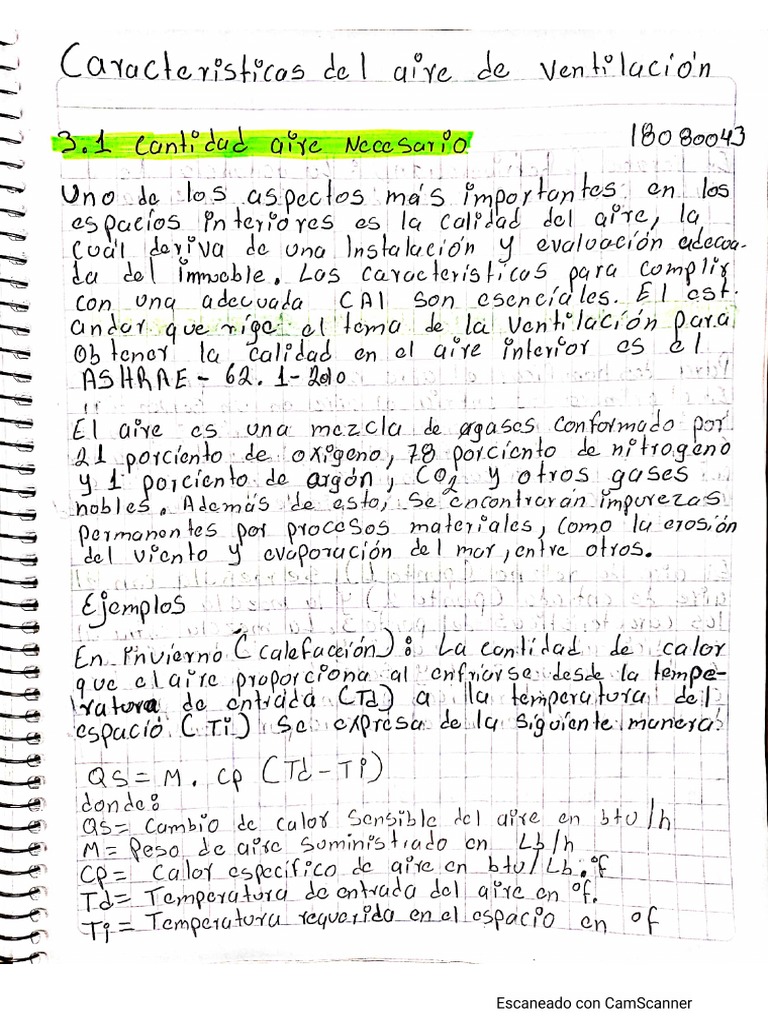 Caracteristicas del aire de ventilación
3.1 Cantidad aire Necesario
18080043
Uno de los aspectos más importantes en los
espacios interiores es la calidad del aire, la
cual deriva de una Instalación y evaluación adecua-
da del inmueble. Las caracteristicas para complir
con una adecuada CAI son esenciales. El est-
andar que rige el tema de la ventilación para
Obtener la calidad en el aire interior es el
ASHRAE - 62.1-2010
El aire es una mezcla de gases conformado por
21 porciento de oxigeno, 78 porciento de nitrogeno
y 1 porciento de argón, CO2 y otros gases
nobles. Además de esto, se encontraran impurezas
permanentes por procesos materiales, como la erosión
del viento y evaporación del mar, entre otros.
Ejemplos
En invierno (calefacción): La cantidad de calor
que el aire proporciona al enfriarse desde la tempe-
ratura de entrada (Td) a la temperatura del
espacio (Ti) se expresa de la siguiente manera:
Qs = M. Cp (Td-Ti)
donde:
Qs= Cambio de calor sensible del aire en btu/h
M= Peso de aire suministrado en Lb/h
Cp= Calor especifico de aire en btu/Lb.°f
Td= Temperatura de entrada del aire en °f.
Ti= Temperatura requerida en el espacio en °f
Escaneado con CamScanner